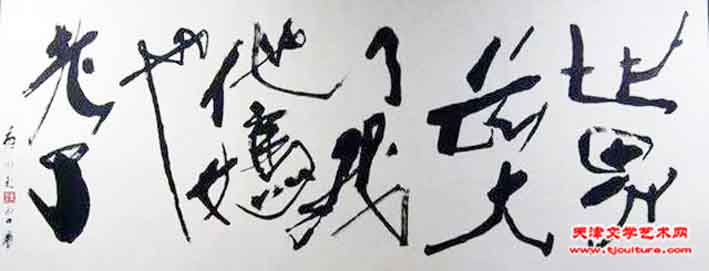 世界
大
了我
他媽
也
老了
天津文学艺术网
www.tjculture.com